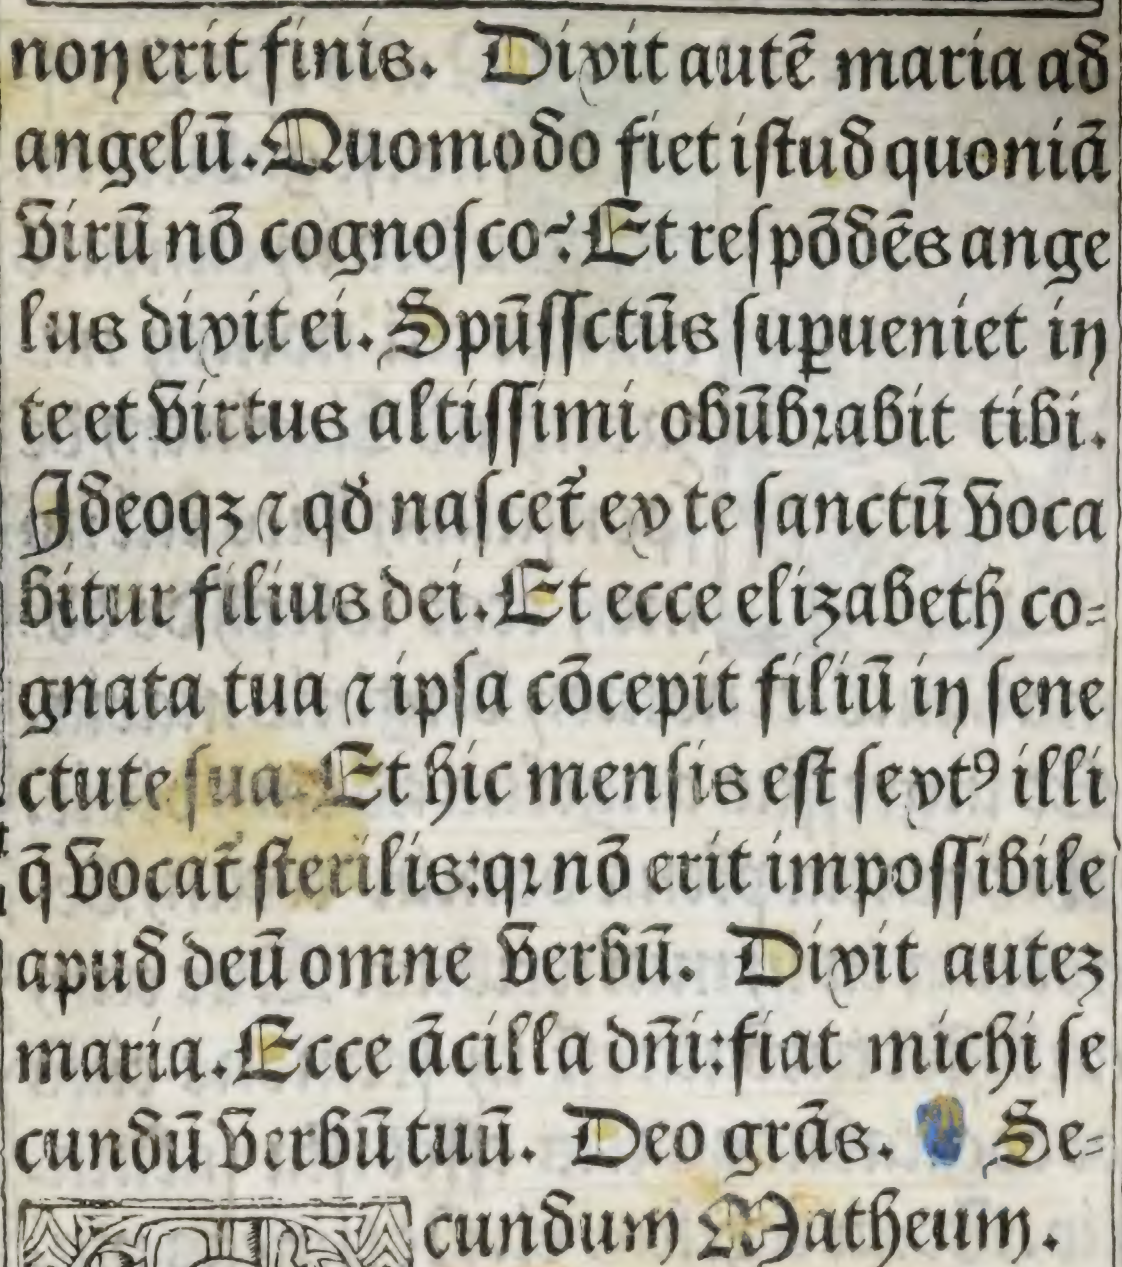 non erit finis. Dixit autē maria ad
angelū. Quomodo fiet istud quoniā
virū nō cognosco? Et respōdēs ange
lus dixit ei. Spūssctūs supueniet in
te et virtus altissimi obūbꝛabit tibi.
Ideoqꝫ ⁊ qď nascet̉ ex te sanctū voca
bitur filius dei. Et ecce elizabeth co=
gnata tua ⁊ ipsa cōcepit filiū in sene
ctute sua. Et hic mensis est sextꝰ illi
q̄ vocat̉ sterilis: qꝛ nō erit impossibile
apud deū omne verbū. Dixit auteꝫ
maria. Ecce ācilla dn̄i: fiat michi se
cundū verbū tuū. Deo grās. Se=
cundum Matheum.